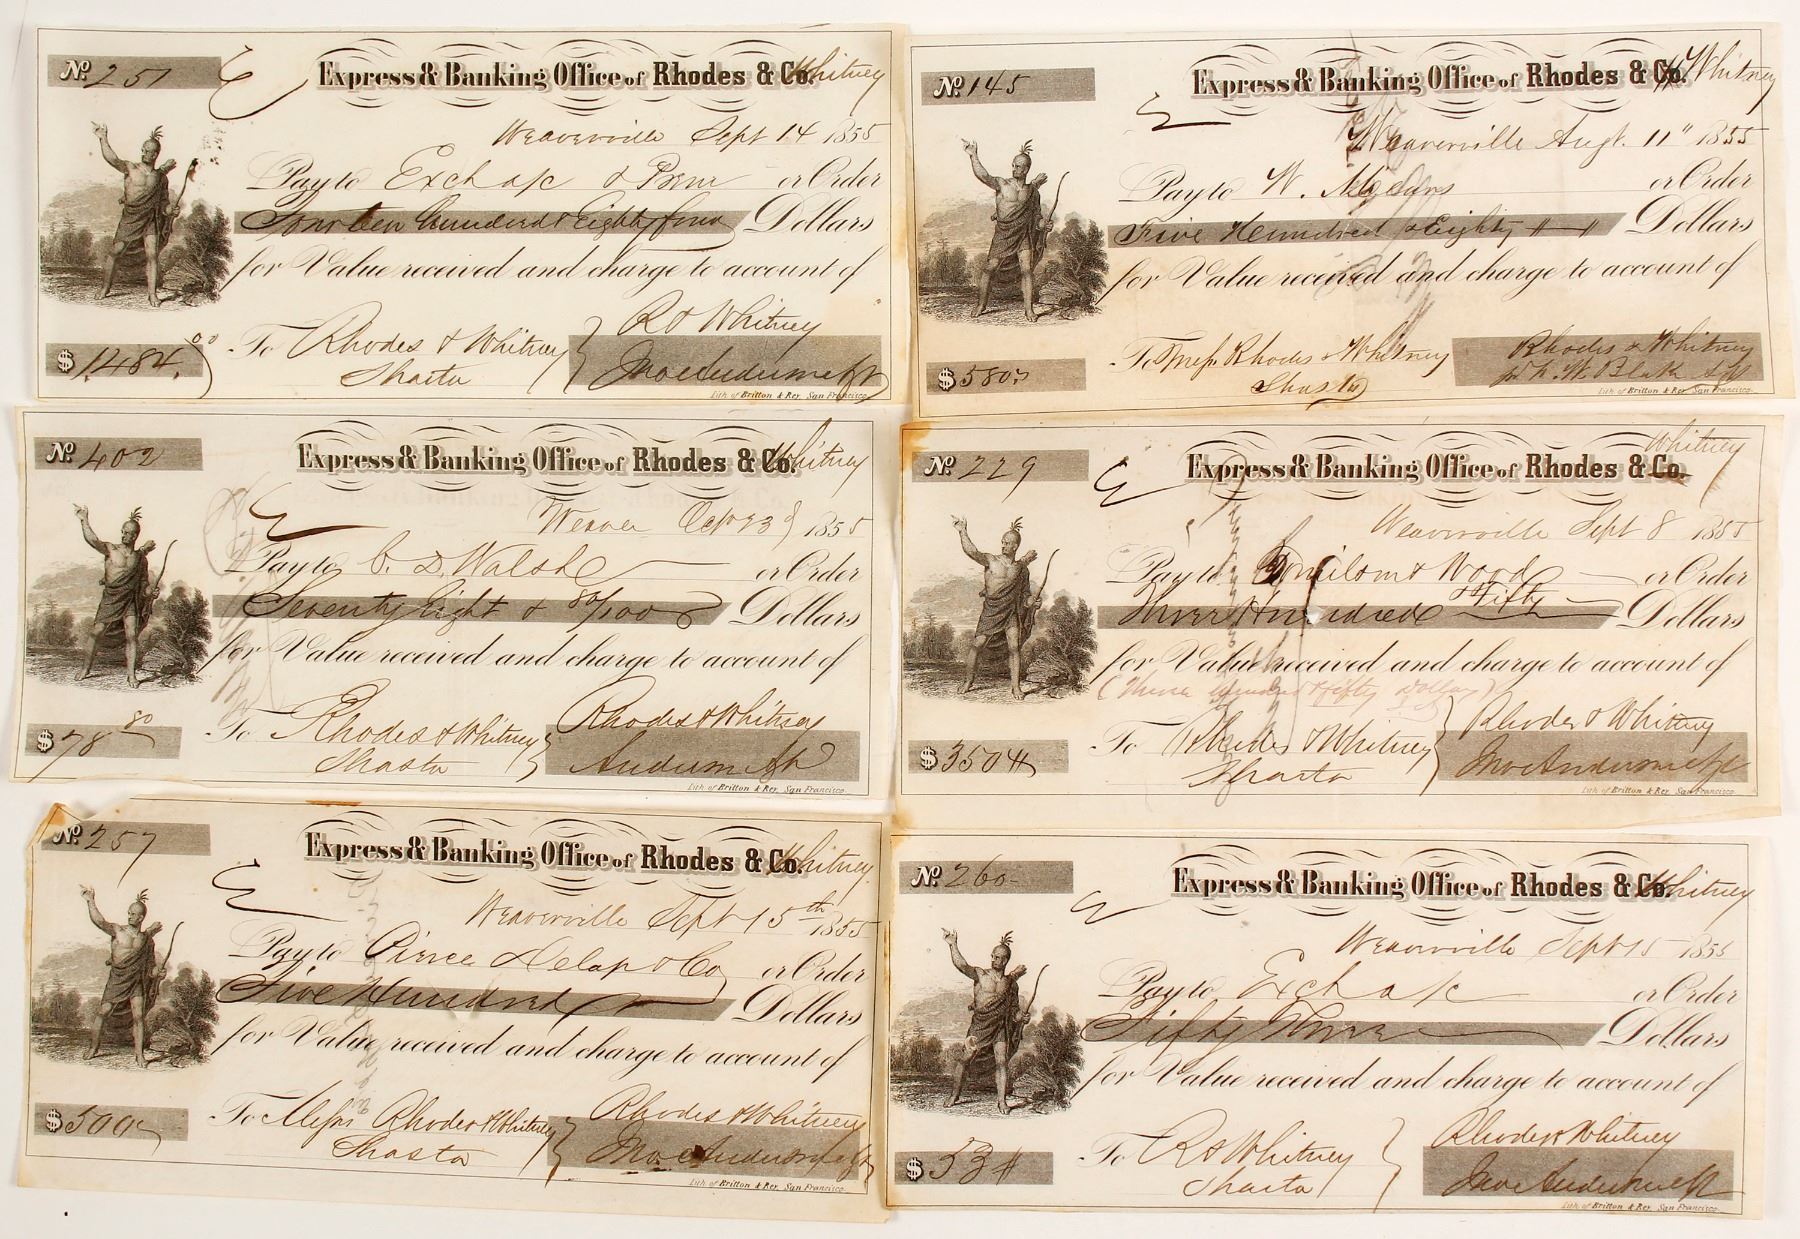 No. 251
Express & Banking Office of Rhodes & Co. Whitney
Weaverville Sept 14 1855
Pay to Exch a/c & Prem or Order
Fourteen hundred & Eighty four Dollars
for Value received and charge to account of
To Rhodes & Whitney
Shasta
R & Whitney
$ 1,484.00
Lith of Britton & Rey San Francisco
No. 145
Express & Banking Office of Rhodes & Co. Whitney
Weaverville Augt. 11" 1855
Pay to W. or Order
Five Hundred & Eighty Dollars
for Value received and charge to account of
To Mess Rhodes & Whitney
Shasta
Rhodes & Whitney
$ 580
Lith of Britton & Rey San Francisco
No. 402
Express & Banking Office of Rhodes & Co. Whitney
Weaver Oct 23d 1855
Pay to C. D. Walsh or Order
Seventy Eight & 80/100 Dollars
for Value received and charge to account of
To Rhodes & Whitney
Shasta
Rhodes & Whitney
$ 78 80
Lith of Britton & Rey San Francisco
No. 229
Express & Banking Office of Rhodes & Co. Whitney
Weaverville Sept 8 1855
Pay to & Wood or Order
Three Hundred & Fifty Dollars
for Value received and charge to account of
(Three Hundred & fifty Dollars)
To Rhodes & Whitney
Shasta
Rhodes & Whitney
$ 350
Lith of Britton & Rey San Francisco
No. 257
Express & Banking Office of Rhodes & Co. Whitney
Weaverville Sept 15th 1855
Pay to Pierce & Co or Order
Five Hundred Dollars
for Value received and charge to account of
To Messrs Rhodes & Whitney
Shasta
Rhodes & Whitney
$ 500
Lith of Britton & Rey San Francisco
No. 260
Express & Banking Office of Rhodes & Co. Whitney
Weaverville Sept 15 1855
Pay to Exch a/c or Order
Fifty Three Dollars
for Value received and charge to account of
To R & Whitney
Shasta
Rhodes & Whitney
$ 53
Lith of Britton & Rey San Francisco